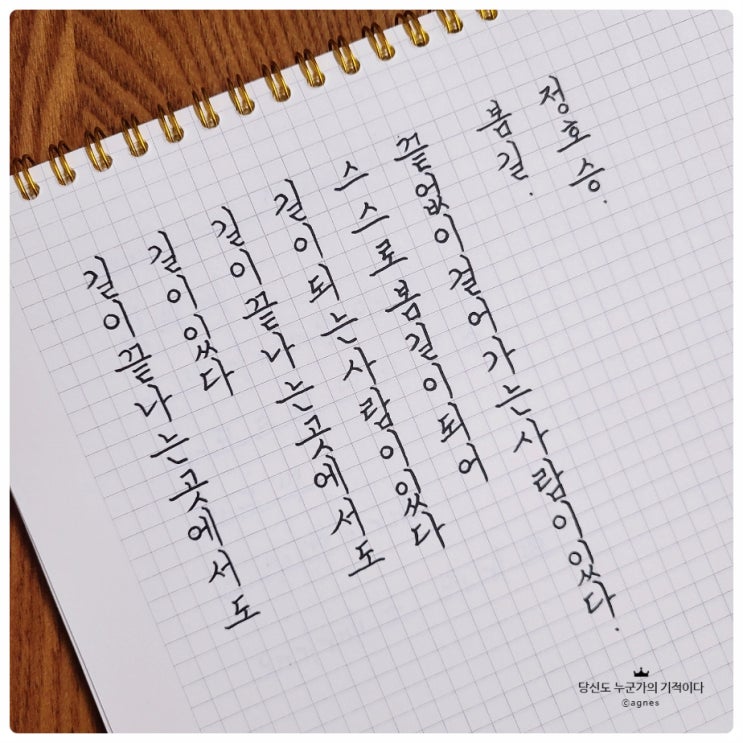 길이 끝나는 곳에서도
길이 있다
길이 끝나는 곳에서도
길이 되는 사람이 있다
스스로 봄길이 되어
끝없이 걸어가는 사람이 있다.
봄길.
정호승.
당신도 누군가의 기적이다
©agnes